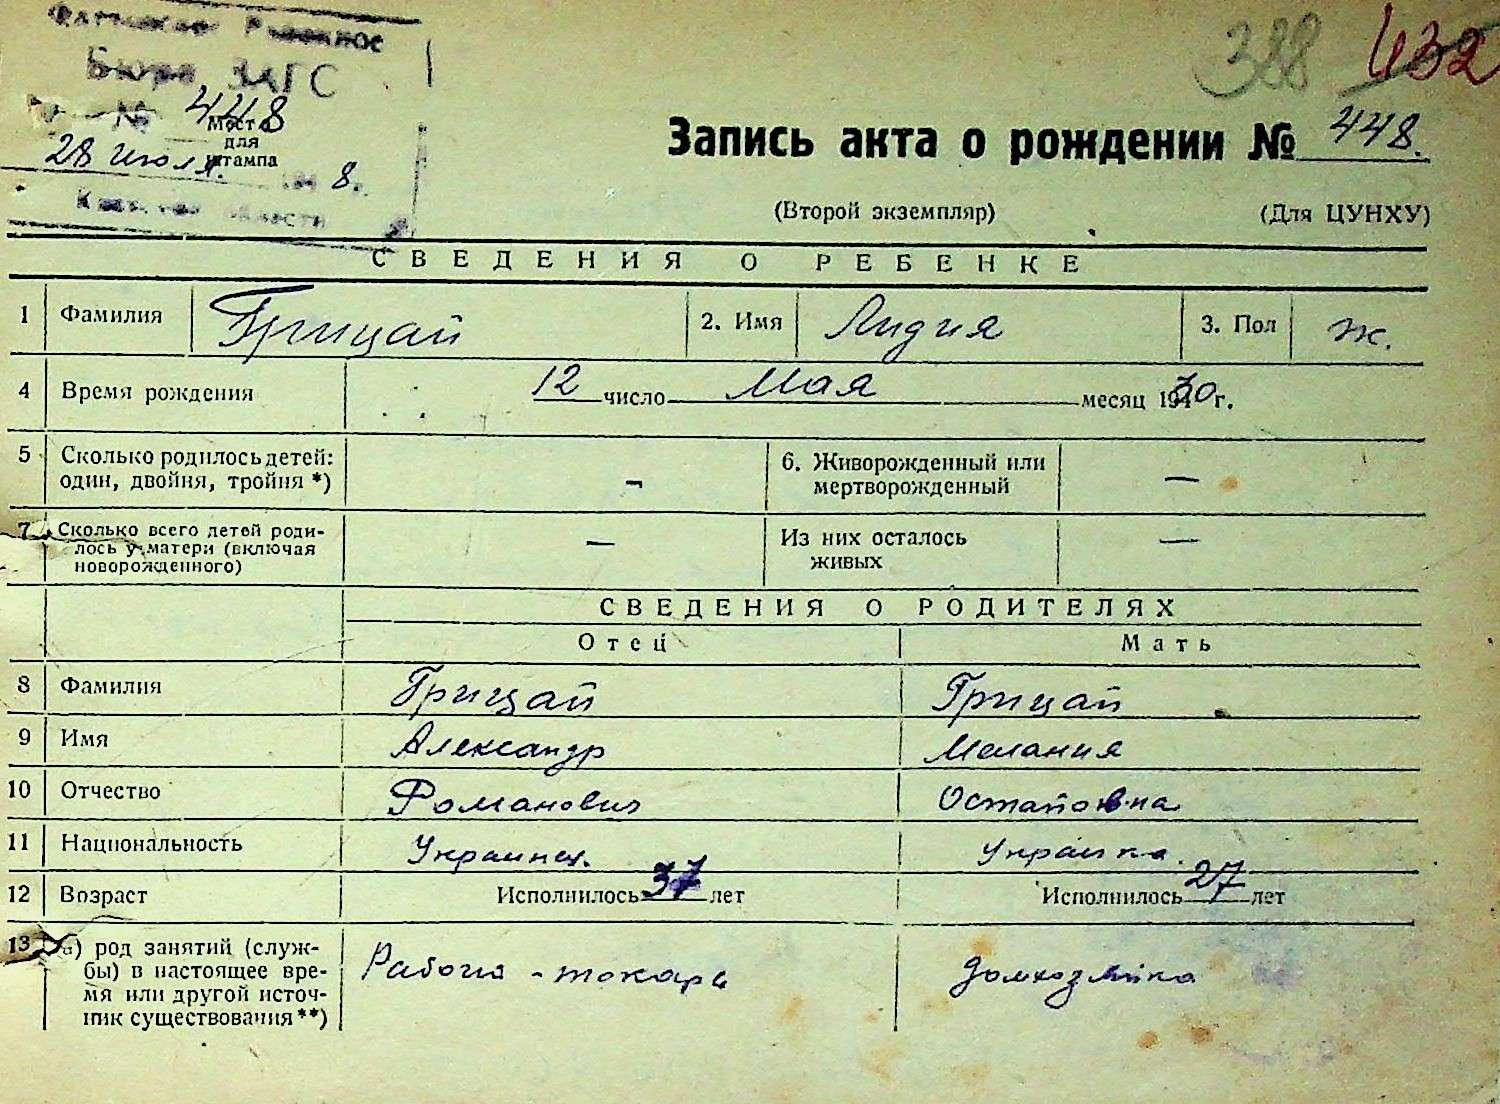 Бюро ЗАГС
388 432
№ 448
Место
для
штампа
28 июля 8.
области
Запись акта о рождении № 448.
(Второй экземпляр) (Для ЦУНХУ)
СВЕДЕНИЯ О РЕБЕНКЕ
1 Фамилия Грицай 2. Имя Лидия 3. Пол ж.
4 Время рождения 12 число Мая месяц 1930 г.
5 Сколько родилось детей: один, двойня, тройня *) — 6. Живорожденный или мертворожденный —
7 Сколько всего детей родилось у матери (включая новорожденного) — Из них осталось живых —
СВЕДЕНИЯ О РОДИТЕЛЯХ
Отец Мать
8 Фамилия Грицай Грицай
9 Имя Александр Мелания
10 Отчество Романович Остаповна
11 Национальность Украинец. Украинка.
12 Возраст Исполнилось 37 лет Исполнилось 27 лет
13 а) род занятий (служ-
бы) в настоящее вре-
мя или другой источ-
ник существования **) - токарь домхозяйка